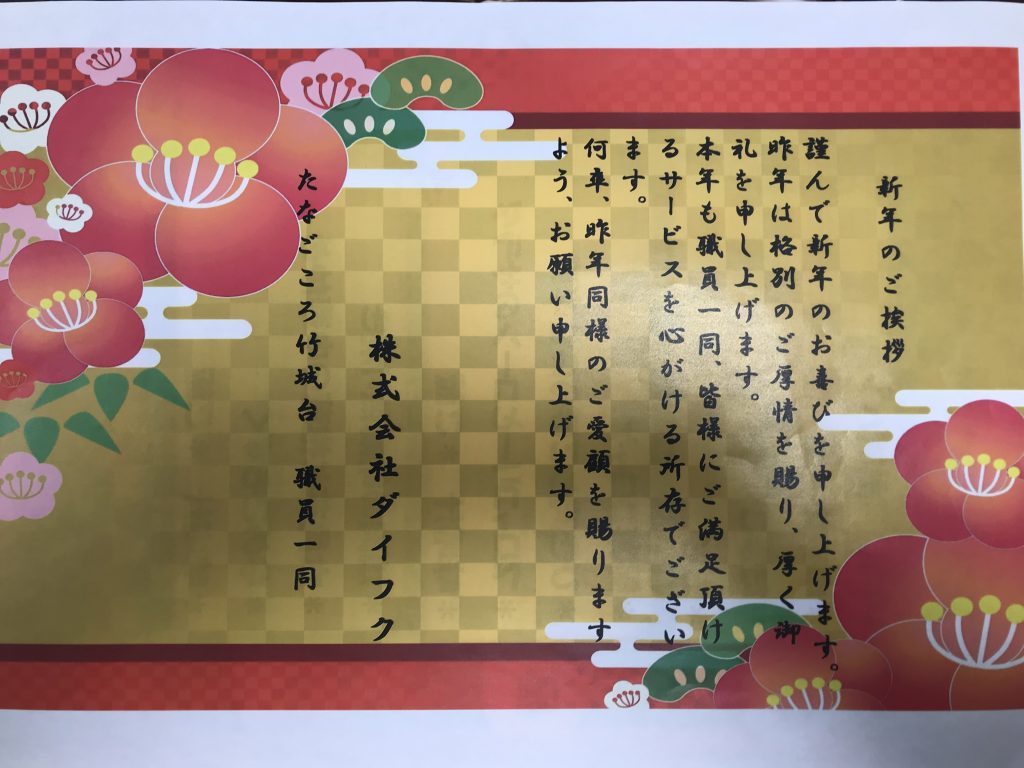 新年のご挨拶
謹んで新年のお喜びを申し上げます。
昨年は格別のご厚情を賜り、厚く御
礼を申し上げます。
本年も職員一同、皆様にご満足頂け
るサービスを心がける所存でござい
ます。
何卒、昨年同様のご愛顧を賜ります
よう、お願い申し上げます。
株式会社ダイフク
たなごころ竹城台 職員一同